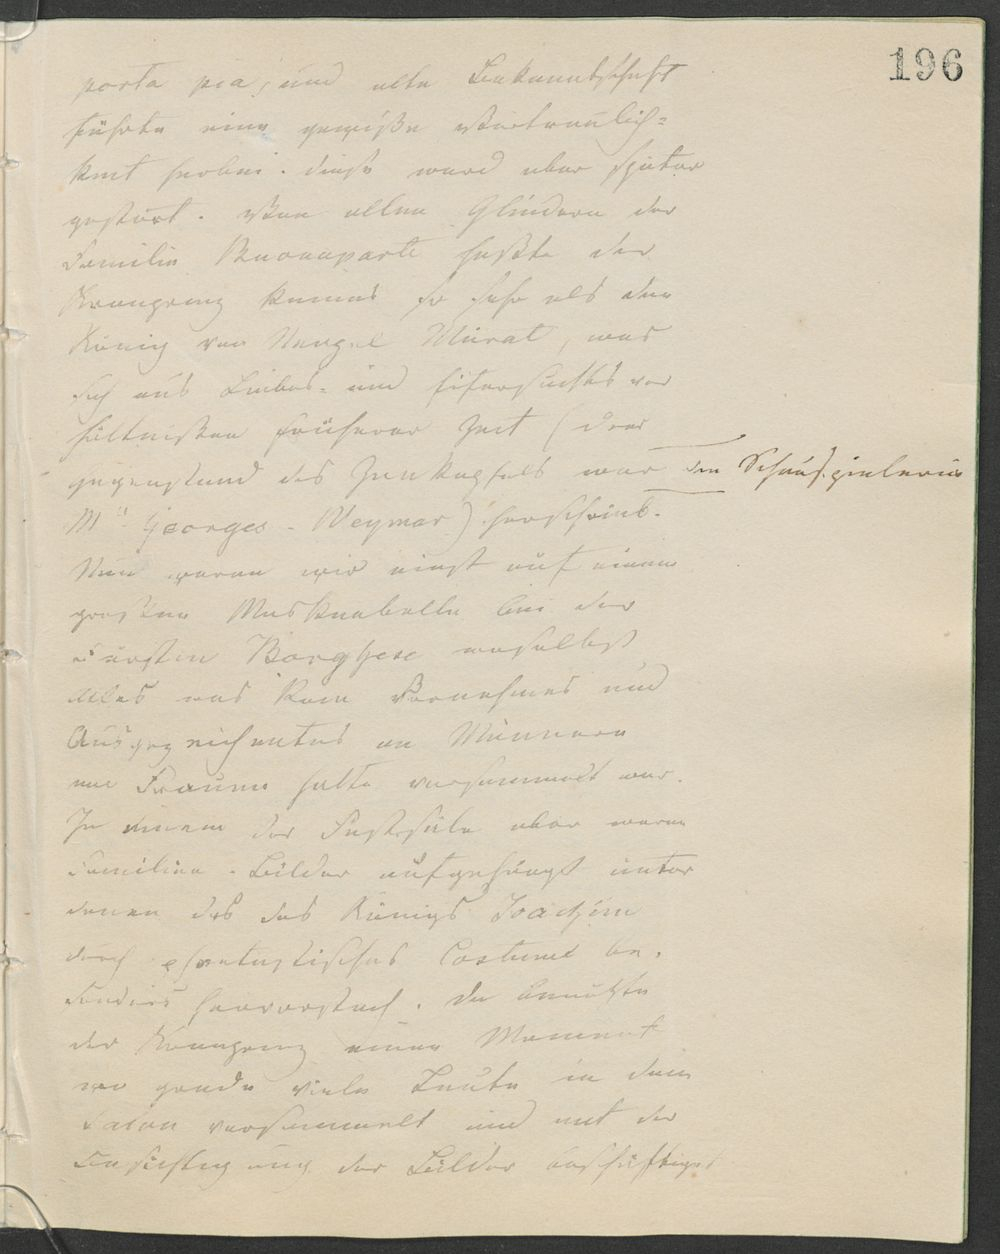 196
porta pia, und alte Bekanntschaft
führte eine gewiße Vertraulich=
keit herbei. Diese ward aber später
gestört. Von allen Gliedern der
Familie Buonaparte haßte der
Kronprinz keines so sehr als den
König von Neapel Murat, was
sich aus Liebes- und Eifersuchts ver
hältnißen früherer Zeit (deren
gegenstand des Zankapfels war die Schauspielerin
Mll Georges-Weymar) herschrieb.
Nun waren wir einst auf einem
großen Maskenballe bei der
Fürstin Borghese woselbst
Alles was Rom Vornehmes und
Ausgezeichnetes an Männern
und Frauen hatte versammelt war.
In einem der Festsäle aber waren
Familien-Bilder aufgehängt unter
denen das des Königs Joachim
durch phantastisches Costume be-
sonders hervorstach. Da benützte
der Kronprinz einen Moment
wo gerade viele Leute in dem
Salon versammelt und mit der
Besichtigung der Bilder beschäftiget